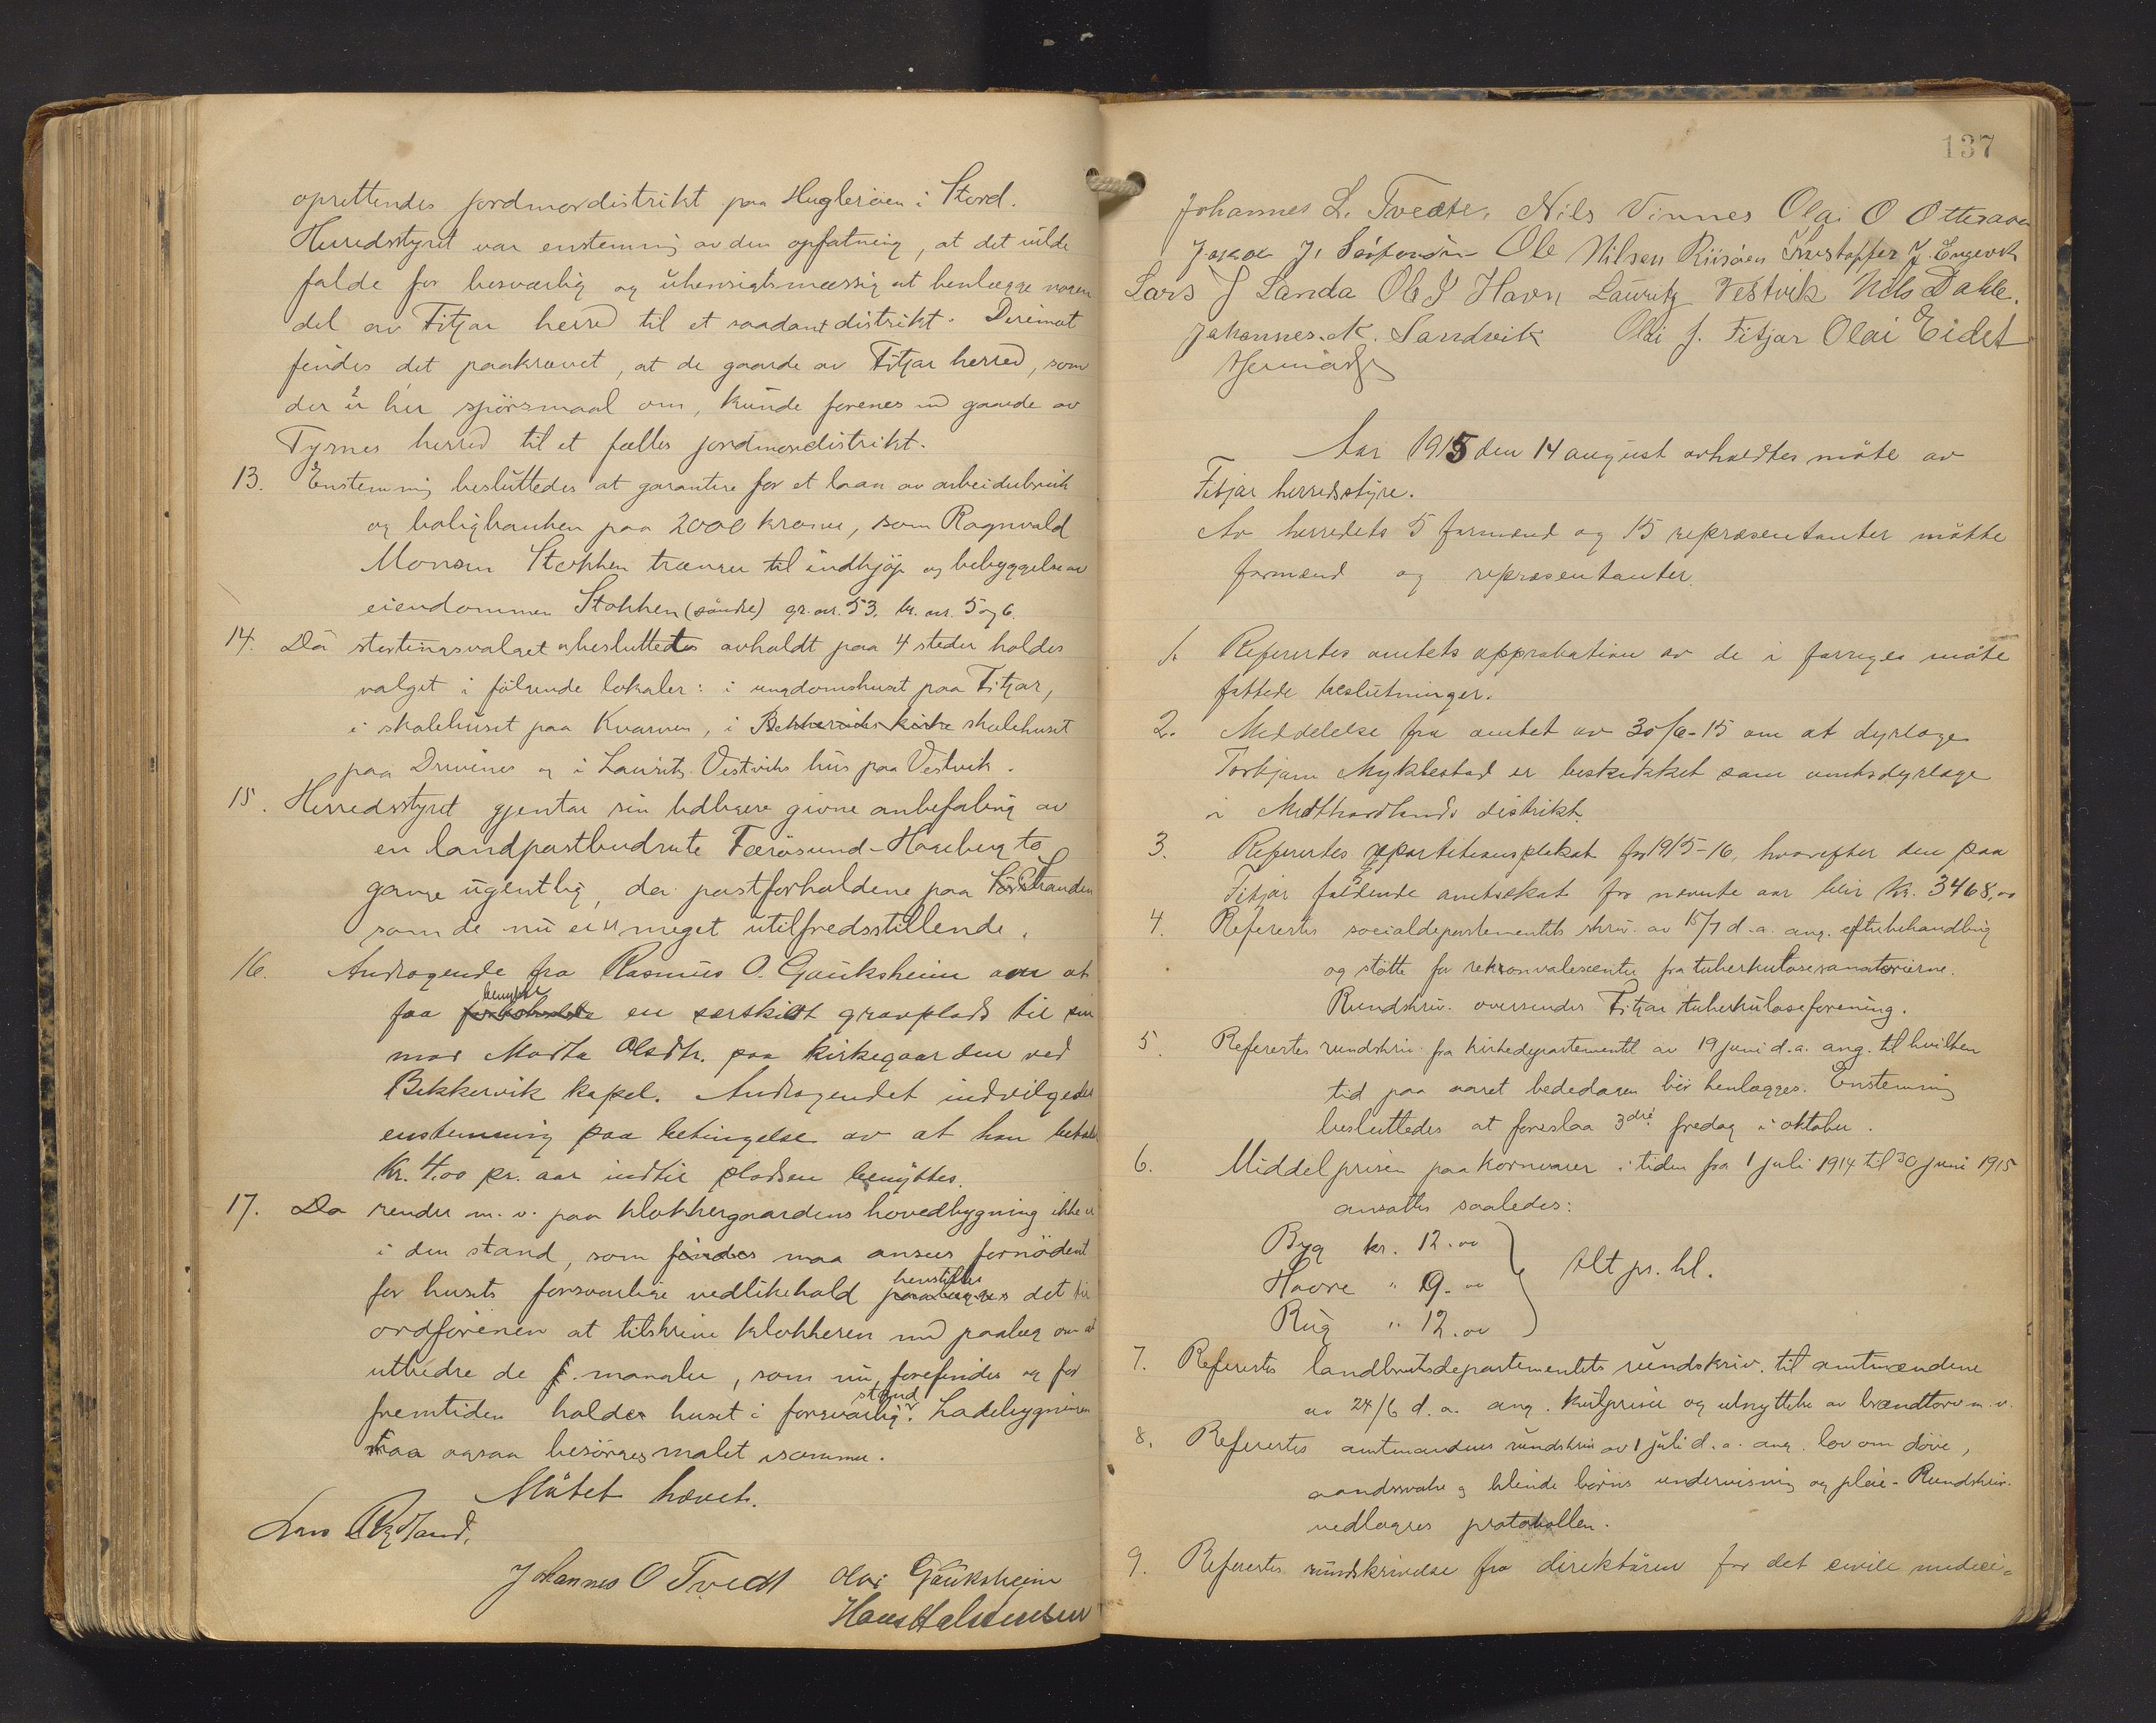 oprettendes jordmordistrikt paa Hugleröen i Stord.
Herredsstyret var enstemmig av den opfatning, at det vilde
falde for besværlig og uhensigtsmæssig at henlægge nogen
del av Fitjar herred til et saadant distrikt. Derimot
findes det paakrævet, at de gaarde av Fitjar herred, som
der er her spörsmaal om, kunde forenes m gaarde av
Tysnes herred til et fælles jordmordistrikt.
13. Enstemmig besluttedes at garantere for et laan av arbeiderbruk
og boligbanken paa 2000 kroner, som Ragnvald
Monsen Stokken trænger til indkjöp og bebyggelse av
eiendommen Stokken (söndre) gr. nr. 53, br. nr. 5 og 6.
14. Da stortingsvalget besluttedes avholdt paa 4 steder holdes
valget i fölgende lokaler: i ungdomshuset paa Fitjar,
i skolehuset paa Kvarven, i Bekkerviks kirke skolehuset
paa Drivenes og i Lauritz Vestviks hus paa Vestvik.
15. Herredsstyret gjentar sin tidligere givne anbefaling av
en landpostbudrute Færösund-Hageberg to
gange ugentlig, da postforholdene paa Stranden
som de nu er er meget utilfredsstillende.
16. Andragende fra Rasmus O. Gauksheim om at
benytte
faa en særskildt gravplads til sin
mor Marta Olsdtr. paa kirkegaarden ved
Bekkervik kapel. Andragendet indvilgedes
enstemmig paa betingelse av at han betaler
Kr. 4.00 pr. aar indtil pladsen benyttes.
17. Da render m. v. paa klokkergaardens hovedbygning ikke er
i den stand, som findes maa ansees fornödent
henstilles
for husets forsvarlige vedlikehold paalægges det til
ordföreren at tilskrive klokkeren med paalæg om at
utbedre de f. mangler, som nu forefindes og for
stand
fremtiden holder huset i forsvarlig. Ladebygningen
maa ogsaa besörges malet isommer.
Mötet hævet.
Lars Rydland,
Johannes O Tvedt Olai Gauksheim
Hans Halvorsen
137
Johannes L. Tvedte, Nils Vinnes Olai O Ottesaven
J. Ole Nilsen Risöen Kristoffer J. Engevik
Lars J Landa Ole J Havn Lauritz Vestvik Nils Dahle.
Johannes K. Sandvik Olai J. Fitjar Olai Eidet
Aar 1915 den 14 august avholdtes möte av
Fitjar herredsstyre.
Av herredets 5 formænd og 15 repræsentanter mötte
formænd og repræsentanter.
1. Referertes amtets approbation av de i forrige möte
fattede beslutninger.
2. Meddelelse fra amtet av 30/6-15 om at dyrlæge
Torbjørn Myklestad er beskikket som amtsdyrlæge
i Midthordlands distrikt.
3. Referertes repartitionsplakat for 1915-16, hvorefter den paa
Fitjar faldende amtsskat for nævnte aar blir Kr. 3468,00
4. Referertes socialdepartementets skriv. av 15/7 d.a. ang. efterbehandling
og stötte for rekonvalescenter fra tuberkulosesanatorierne.
Rundskriv. oversendes Fitjar tuberkuloseforening.
5. Referertes rundskriv. fra kirkedepartementet av 19 juni d.a. ang. til hvilken
tid paa aaret bededagen bör henlægges. Enstemmig
besluttedes at foreslaa 3die fredag i oktober.
6. Middelprisen paa kornvarer i tiden fra 1 juli 1914 til 30 juni 1915
ansattes saaledes:
Byg kr. 12.00
Havre " 9.00 Alt pr. hl.
Rug " 12.00
7. Referertes landbruksdepartementets rundskriv. til amtmændene
av 24/6 d.a. ang. kulpriser og utnyttelse av brændtorv m.v.
8. Referertes amtmandens rundskriv av 1 juli d.a. ang. lov om döve,
aandssvake og blinde börns undervisning og pleie. Rundskriv.
vedlægges protokollen.
9. Referertes rundskrivelse fra direktören for det civile medici-